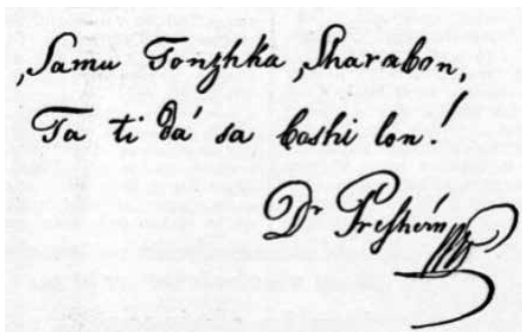 ,Samu Tonzhka ,Sharabon,
Ta ti dá sa boshi lon!
Dr Preſhérn